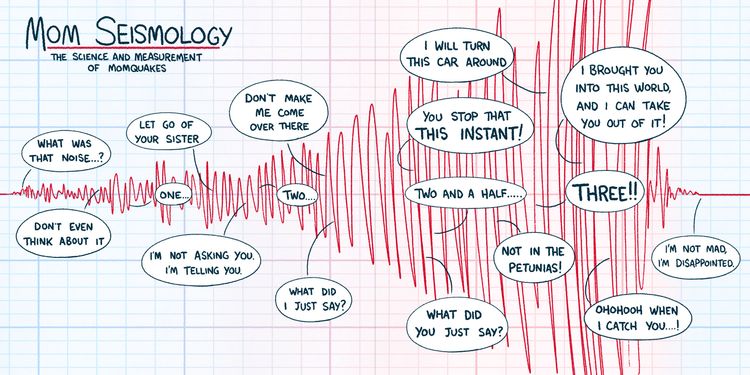 MOM SEISMOLOGY
THE SCIENCE AND MEASUREMENT
OF MOMQUAKES
WHAT WAS
THAT NOISE...?
DON'T EVEN
THINK ABOUT IT
ONE...
LET GO OF
YOUR SISTER
I'M NOT ASKING YOU.
I'M TELLING YOU.
DON'T MAKE
ME COME
OVER THERE
TWO....
WHAT DID
I JUST SAY?
I WILL TURN
THIS CAR AROUND
YOU STOP THAT
THIS INSTANT!
TWO AND A HALF.....
WHAT DID
YOU JUST SAY?
NOT IN THE
PETUNIAS!
I BROUGHT YOU
INTO THIS WORLD,
AND I CAN TAKE
YOU OUT OF IT!
THREE!!
OHOHOOH WHEN
I CATCH YOU....!
I'M NOT MAD,
I'M DISAPPOINTED.